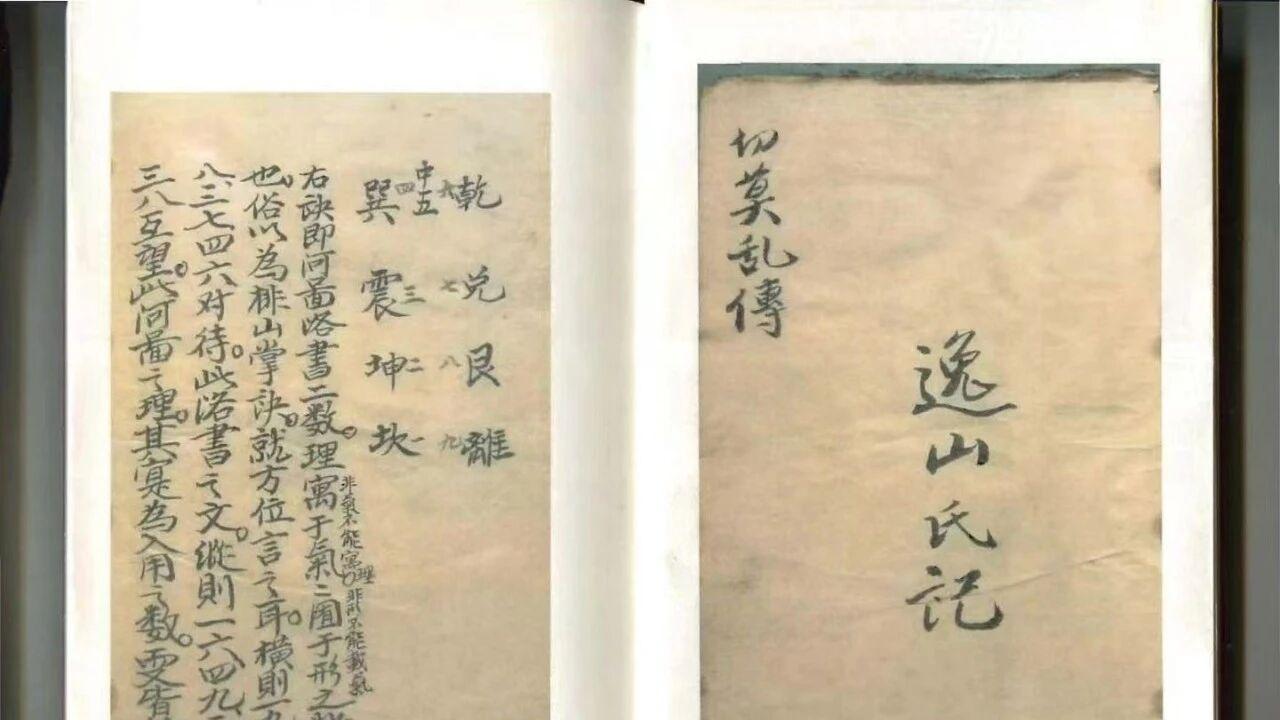 逸山氏記
切莫乱傳
乾兑艮離
六七八九
中五
四三二一
巽震坤坎
右訣即河啚洛書二数。理寓于氣〻囿于形之
非氣不能寓理。非形不能載氣
也。俗以為排山掌訣。就方位言之耳。橫則一九
八、三七四六对待。此洛書之文。縱則一六四九、
三八互望。此河啚之理。其寔為入用之数。要皆